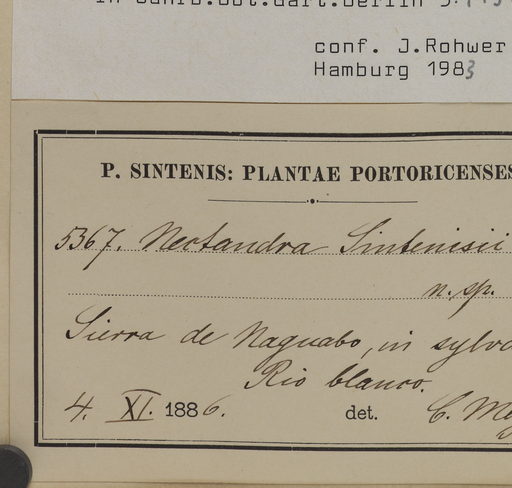 conf. J.Rohwer
Hamburg 1983
P. SINTENIS: PLANTAE PORTORICENSES
5367. Nectandra Sintenisii
n. sp.
Sierra de Naguabo, in sylva
Rio blanco.
4. XI. 1886. det. C. Me